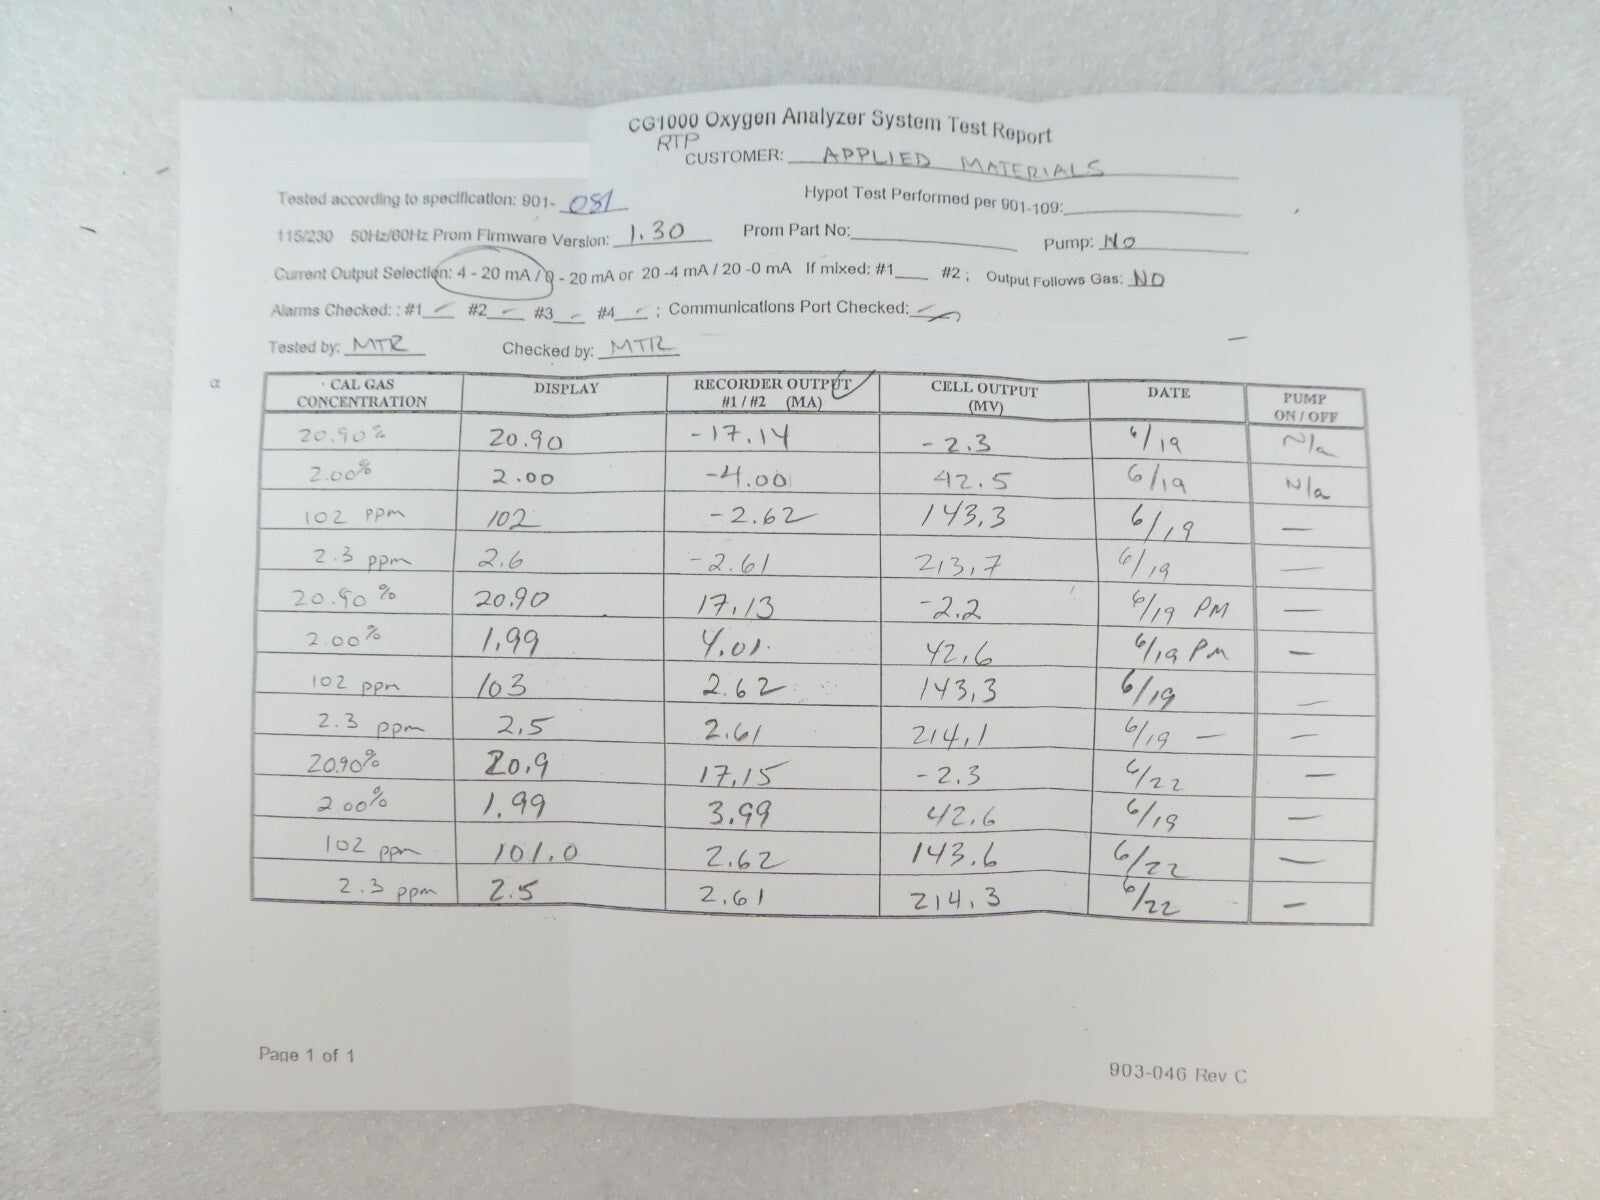 CG1000 Oxygen Analyzer System Test Report
RTP
CUSTOMER: APPLIED MATERIALS
Tested according to specification: 901- 081 Hypot Test Performed per 901-109:
115/230 50Hz/60Hz Prom Firmware Version: 1.30 Prom Part No: Pump: NO
Current Output Selection: 4 - 20 mA / 0 - 20 mA or 20 -4 mA / 20 -0 mA If mixed: #1 #2 ; Output Follows Gas: NO
Alarms Checked: : #1 #2 #3 #4 ; Communications Port Checked:
Tested by: MTR Checked by: MTR
CAL GAS CONCENTRATION DISPLAY RECORDER OUTPUT #1 / #2 (MA) CELL OUTPUT (MV) DATE PUMP ON / OFF
20.90% 20.90 -17.14 -2.3 6/19 N/a
2.00% 2.00 -4.00 42.5 6/19 N/a
102 ppm 102 -2.62 143.3 6/19 —
2.3 ppm 2.6 -2.61 213.7 6/19 —
20.90 % 20.90 17.13 -2.2 6/19 PM —
2.00% 1.99 4.01 42.6 6/19 PM —
102 ppm 103 2.62 143.3 6/19 —
2.3 ppm 2.5 2.61 214.1 6/19 — —
20.90% 20.9 17.15 -2.3 6/22 —
2.00% 1.99 3.99 42.6 6/19 —
102 ppm 101.0 2.62 143.6 6/22 —
2.3 ppm 2.5 2.61 214.3 6/22 —
Page 1 of 1 903-046 Rev C